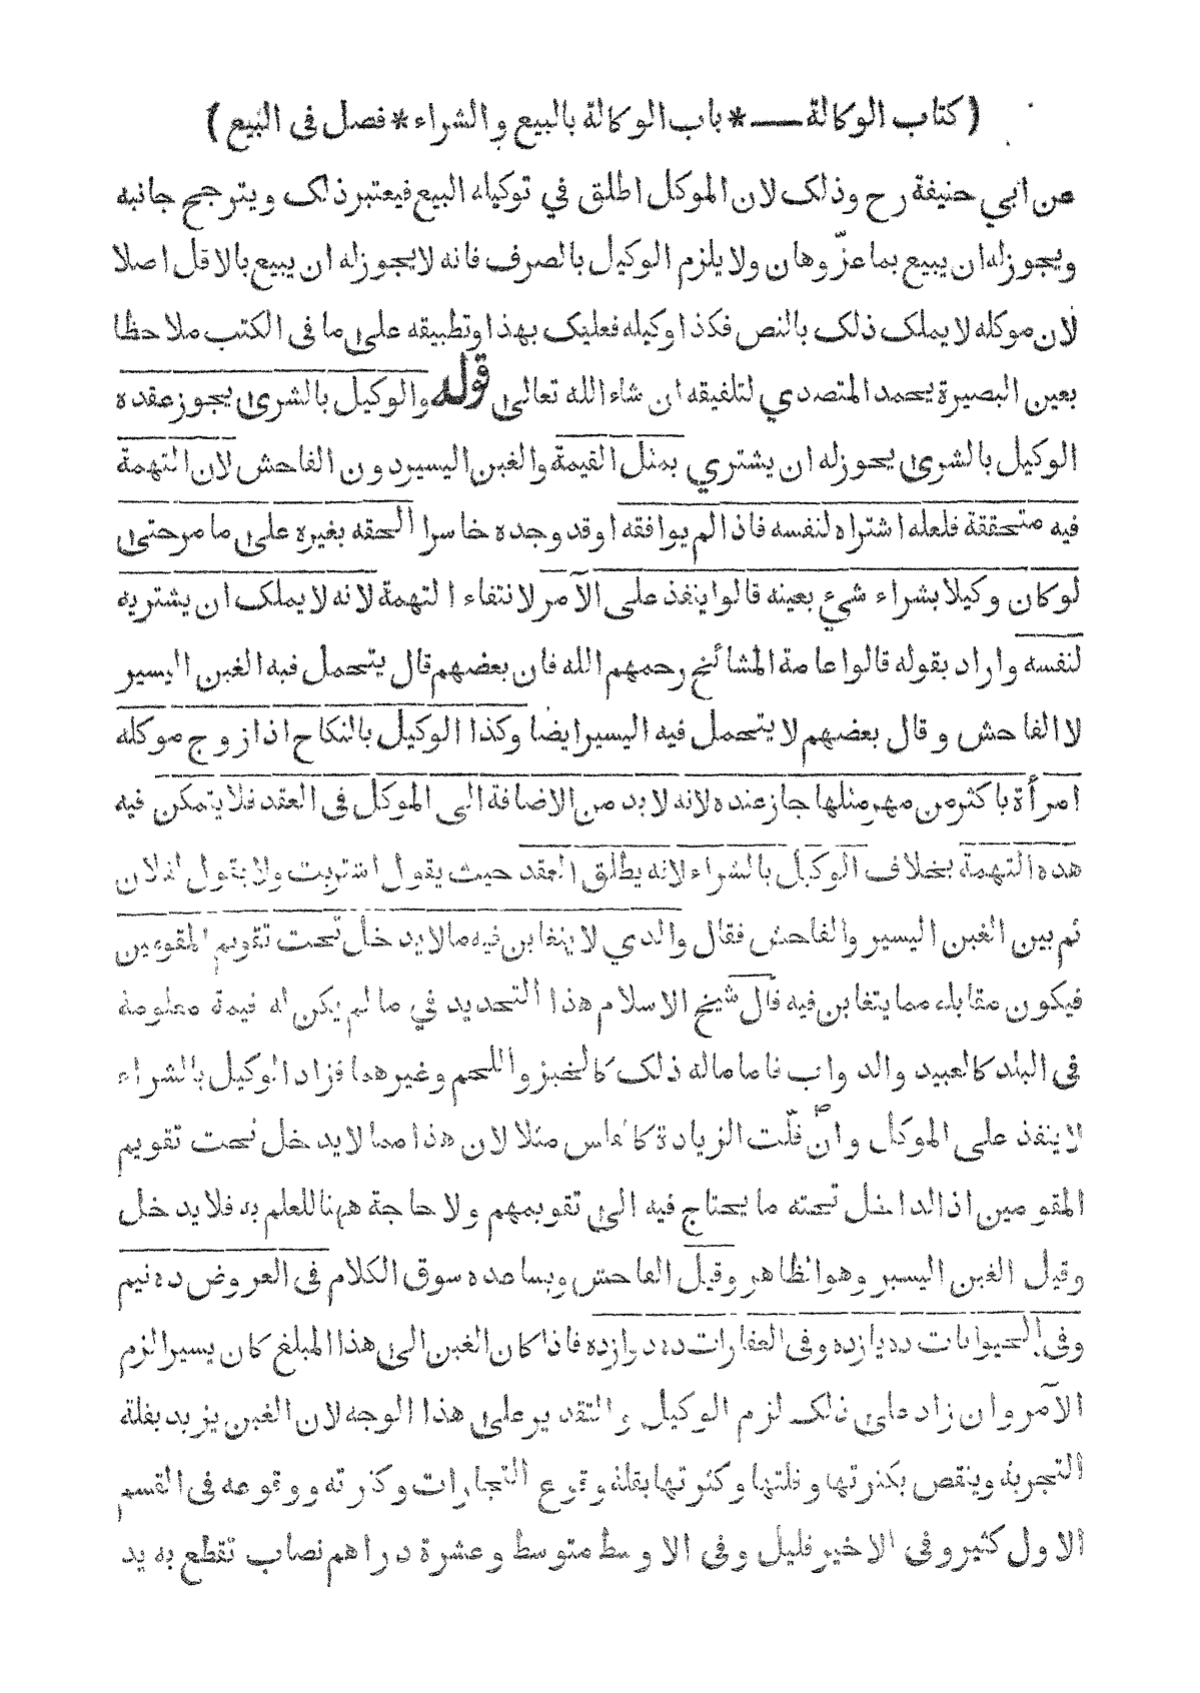 ( كتاب الوكالة — * باب الوكالة بالبيع والشراء * فصل فى البيع )
عن ابي حنيفة رح وذلك لان الموكل اطلق في توكيله البيع فيعتبر ذلك ويترجح جانبه
ويجوز له ان يبيع بما عزّ وهان ولا يلزم الوكيل بالصرف فانه لا يجوز له ان يبيع بالاقل اصلا
لان موكله لا يملك ذلك بالنص فكذا وكيله فعليك بهذا وتطبيقه على ما فى الكتب ملاحظا
بعين البصيرة يحمد المتصدي لتلفيقه ان شاء الله تعالى قوله والوكيل بالشرى يجوز عقده
الوكيل بالشرى يجوز له ان يشتري بمثل القيمة والغبن اليسير دون الفاحش لان التهمة
فيه متحققة فلعله اشتراه لنفسه فاذا لم يوافقه او قد وجده خاسرا الحقه بغيره على ما مر حتى
لو كان وكيلا بشراء شيء بعينه قالوا ينفذ على الآمر لانتفاء التهمة لانه لا يملك ان يشتريه
لنفسه واراد بقوله قالوا عامة المشائخ رحمهم الله فان بعضهم قال يتحمل فيه الغبن اليسير
لا الفاحش وقال بعضهم لا يتحمل فيه اليسير ايضا وكذا الوكيل بالنكاح اذا زوج موكله
امرأة باكثر من مهر مثلها جاز عنده لانه لا بد من الاضافة الى الموكل فى العقد فلا يتمكن فيه
هذه التهمة بخلاف الوكيل بالشراء لانه يطلق العقد حيث يقول اشتريت ولا يقول لفلان
ثم بين الغبن اليسير والفاحش فقال والذي لا يتغابن فيه ما لا يدخل تحت تقويم المقومين
فيكون مقابله مما يتغابن فيه قال شيخ الاسلام هذا التحديد في ما لم يكن له قيمة معلومة
فى البلد كالعبيد والدواب فاما ما له ذلك كالخبز واللحم وغيرهما فزاد الوكيل بالشراء
لا ينفذ على الموكل وان قلّت الزيادة كالفلس مثلا لان هذا مما لا يدخل تحت تقويم
المقومين اذ الداخل تحته ما يحتاج فيه الى تقويمهم ولا حاجة ههنا للعلم به فلا يدخل
وقيل الغبن اليسير وهو الظاهر وقيل الفاحش ويساعده سوق الكلام فى العروض ده نيم
وفى الحيوانات ده يازده وفى العقارات ده دوازده فاذا كان الغبن الى هذا المبلغ كان يسيرا لزم
الآمر وان زاد على ذلك لزم الوكيل والتقدير على هذا الوجه لان الغبن يزيد بقلة
التجربة وينقص بكثرتها وقلتها وكثرتها بقلة وقوع التجارات وكثرته ووقوعه فى القسم
الاول كثير وفى الاخير قليل وفى الاوسط متوسط وعشرة دراهم نصاب تقطع به يد